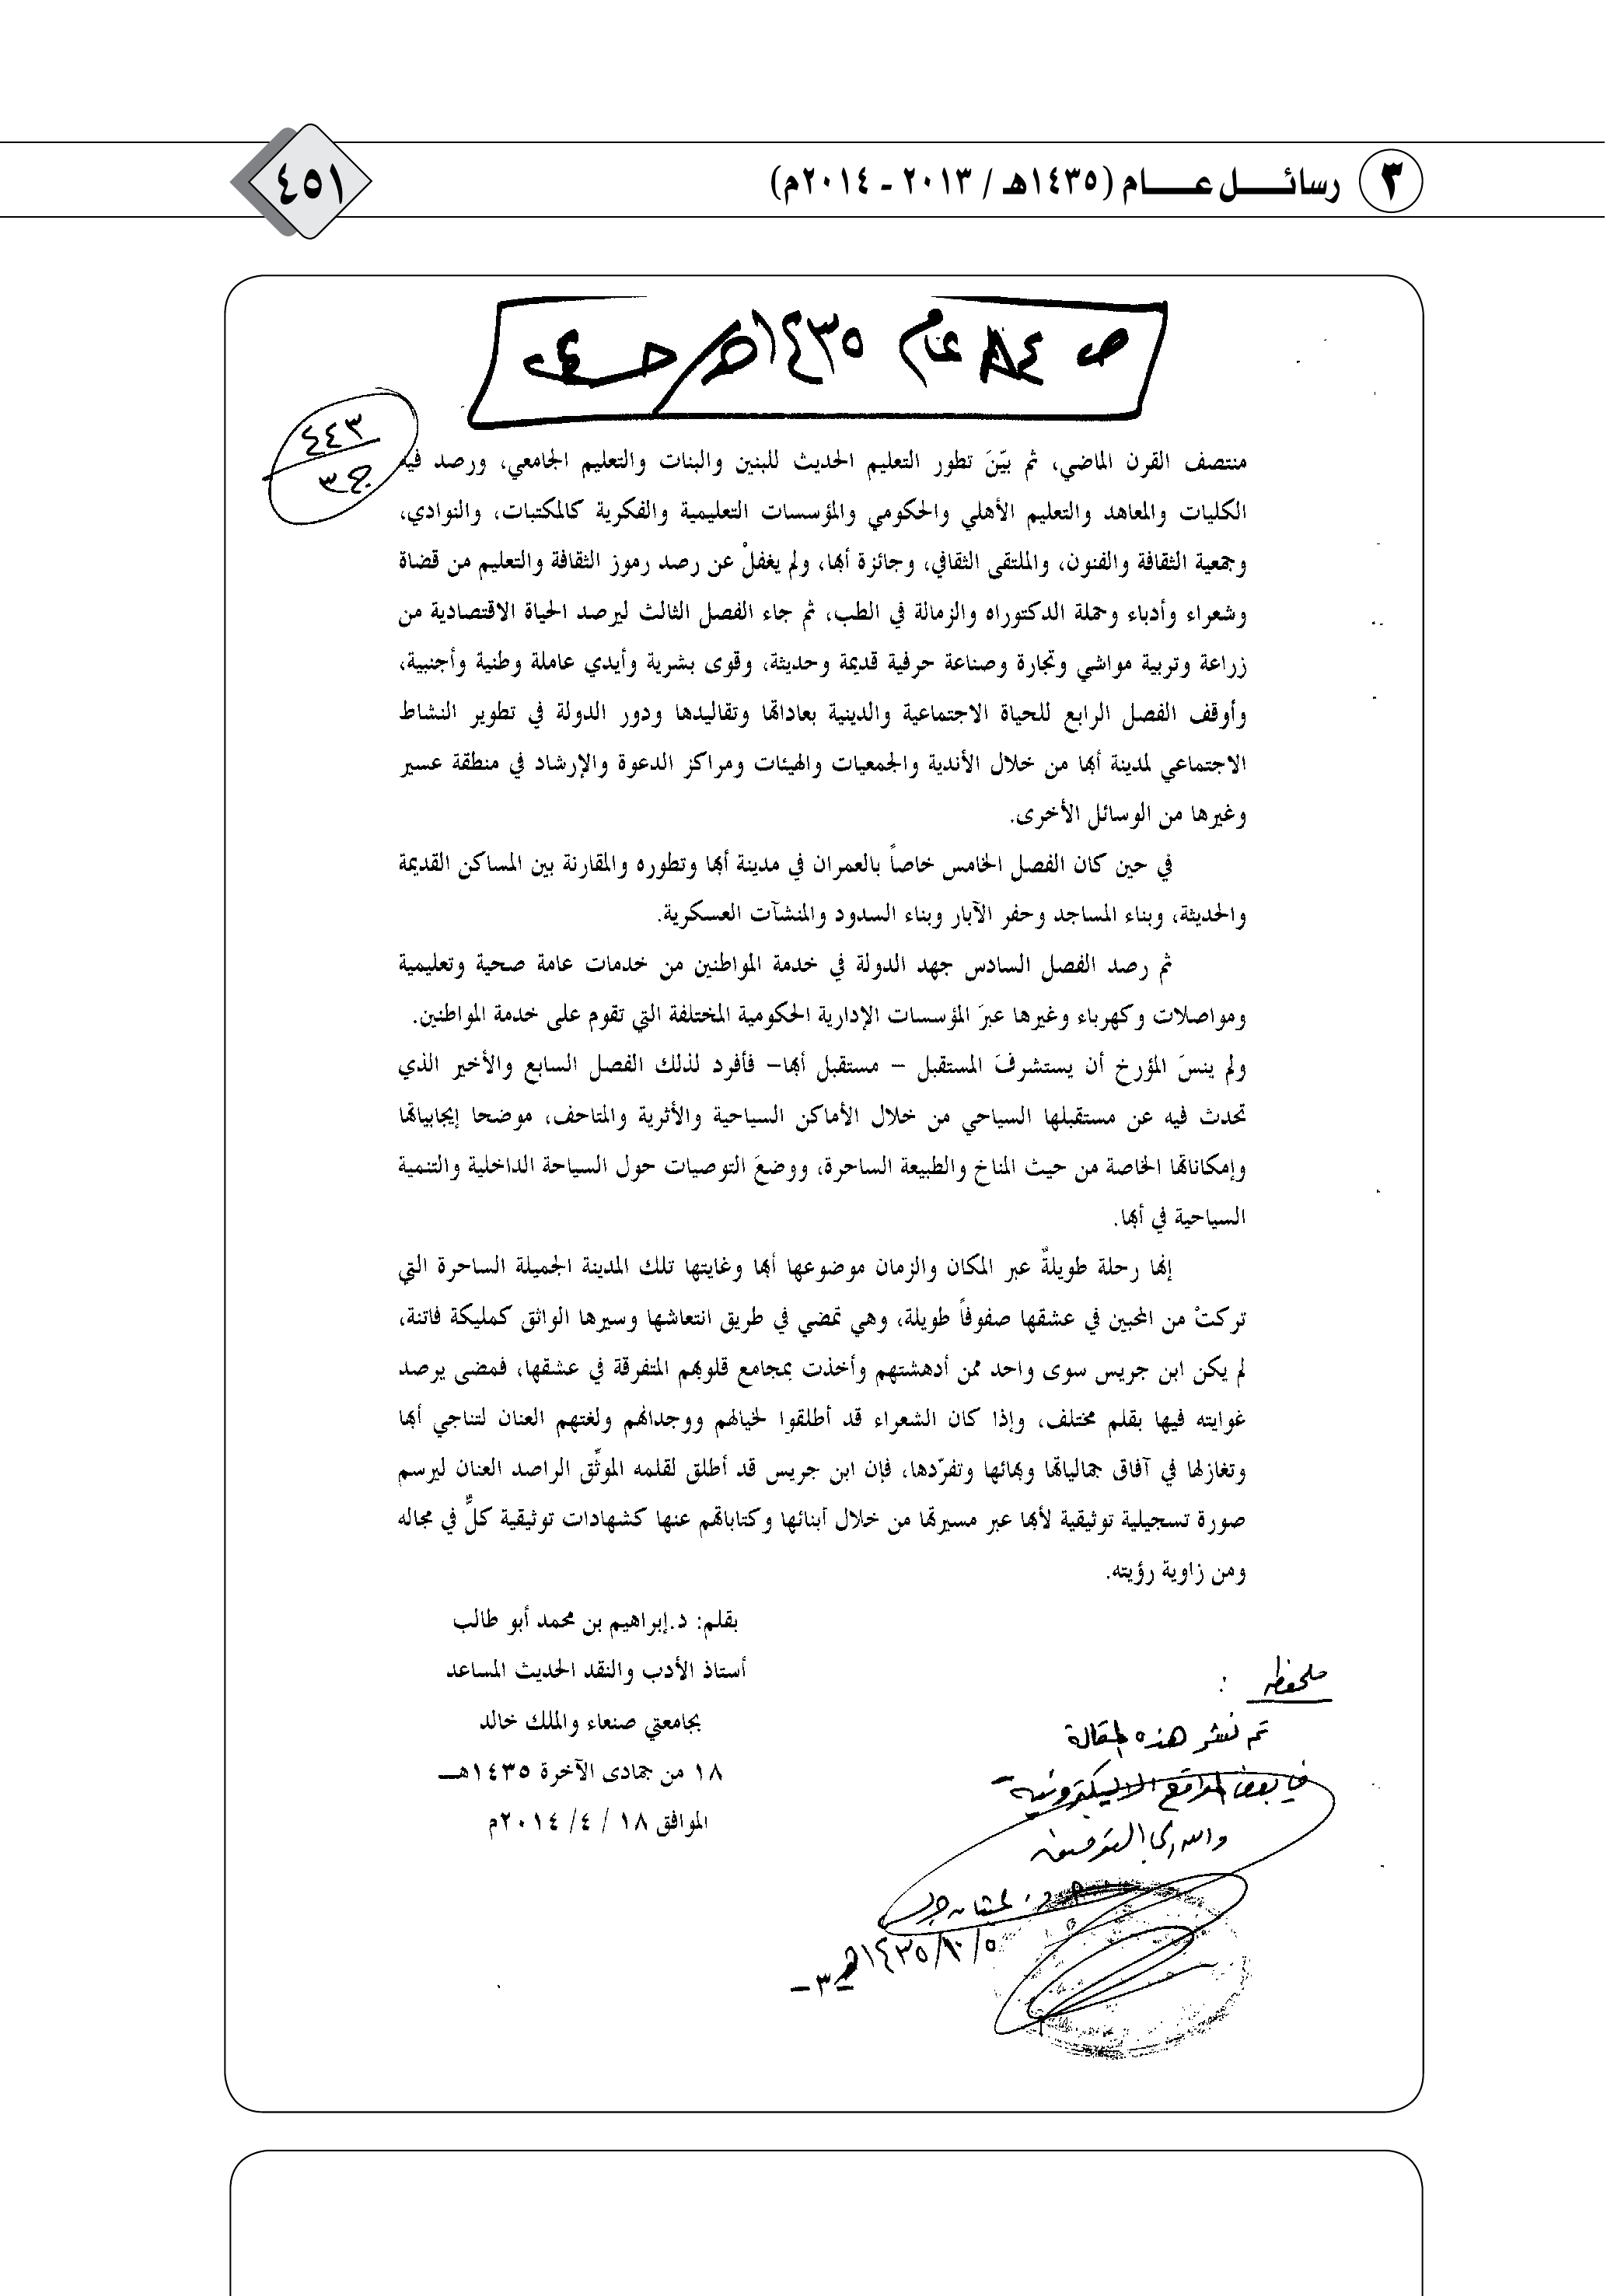 ٣ رسائل عام (١٤٣٥هـ / ٢٠١٣ - ٢٠١٤م)
٤٥١
عام ١٤٣٥هـ
٤٤٣
ج٣
منتصف القرن الماضي، ثم بيّنَ تطور التعليم الحديث للبنين والبنات والتعليم الجامعي، ورصد فيه
الكليات والمعاهد والتعليم الأهلي والحكومي والمؤسسات التعليمية والفكرية كالمكتبات، والنوادي،
وجمعية الثقافة والفنون، والملتقى الثقافي، وجائزة أبها، ولم يغفلْ عن رصد رموز الثقافة والتعليم من قضاة
وشعراء وأدباء وحملة الدكتوراه والزمالة في الطب، ثم جاء الفصل الثالث ليرصد الحياة الاقتصادية من
زراعة وتربية مواشي وتجارة وصناعة حرفية قديمة وحديثة، وقوى بشرية وأيدي عاملة وطنية وأجنبية،
وأوقف الفصل الرابع للحياة الاجتماعية والدينية بعاداتها وتقاليدها ودور الدولة في تطوير النشاط
الاجتماعي لمدينة أبها من خلال الأندية والجمعيات والهيئات ومراكز الدعوة والإرشاد في منطقة عسير
وغيرها من الوسائل الأخرى.
في حين كان الفصل الخامس خاصاً بالعمران في مدينة أبها وتطوره والمقارنة بين المساكن القديمة
والحديثة، وبناء المساجد وحفر الآبار وبناء السدود والمنشآت العسكرية.
ثم رصد الفصل السادس جهد الدولة في خدمة المواطنين من خدمات عامة صحية وتعليمية
ومواصلات وكهرباء وغيرها عبرَ المؤسسات الإدارية الحكومية المختلفة التي تقوم على خدمة المواطنين.
ولم ينسَ المؤرخ أن يستشرفَ المستقبل – مستقبل أبها– فأفرد لذلك الفصل السابع والأخير الذي
تحدث فيه عن مستقبلها السياحي من خلال الأماكن السياحية والأثرية والمتاحف، موضحا إيجابياتها
وإمكاناتها الخاصة من حيث المناخ والطبيعة الساحرة، ووضعَ التوصيات حول السياحة الداخلية والتنمية
السياحية في أبها.
إنها رحلة طويلةٌ عبر المكان والزمان موضوعها أبها وغايتها تلك المدينة الجميلة الساحرة التي
تركتْ من المحبين في عشقها صفوفاً طويلة، وهي تمضي في طريق انتعاشها وسيرها الواثق كمليكة فاتنة،
لم يكن ابن جريس سوى واحد ممن أدهشتهم وأخذت بمجامع قلوبهم المتفرقة في عشقها، فمضى يرصد
غوايته فيها بقلم مختلف، وإذا كان الشعراء قد أطلقوا لخيالهم ووجدانهم ولغتهم العنان لتناجي أبها
وتغازلها في آفاق جمالياتها وبهائها وتفرّدها، فإن ابن جريس قد أطلق لقلمه الموثِّق الراصد العنان ليرسم
صورة تسجيلية توثيقية لأبها عبر مسيرتها من خلال أبنائها وكتاباتهم عنها كشهادات توثيقية كلٌّ في مجاله
ومن زاوية رؤيته.
بقلم: د.إبراهيم بن محمد أبو طالب
أستاذ الأدب والنقد الحديث المساعد
بجامعتي صنعاء والملك خالد
١٨ من جمادى الآخرة ١٤٣٥هـ
الموافق ١٨ / ٤/ ٢٠١٤م
ملحوظه :
تم نشر هذه المقالة
في بعض المواقع الاليكترونية
والله ولي التوفيق
١٤٣٥/١٠/٥هـ
-٣-